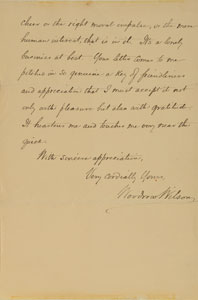 cheer or the right moral impulse, or the more
human interest, that is in it. It's a lonely
business at best. Your letter comes to me
pitched in so genuine a key of friendliness
and appreciation that I must accept it not
only with pleasure but also with gratitude.
It heartens me and touches me very near the
quick.
With sincere appreciation,
Very cordially Yours,
Woodrow Wilson